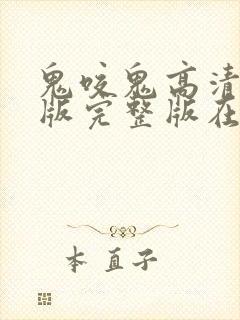 鬼咬鬼高清
版完整版在
本直子